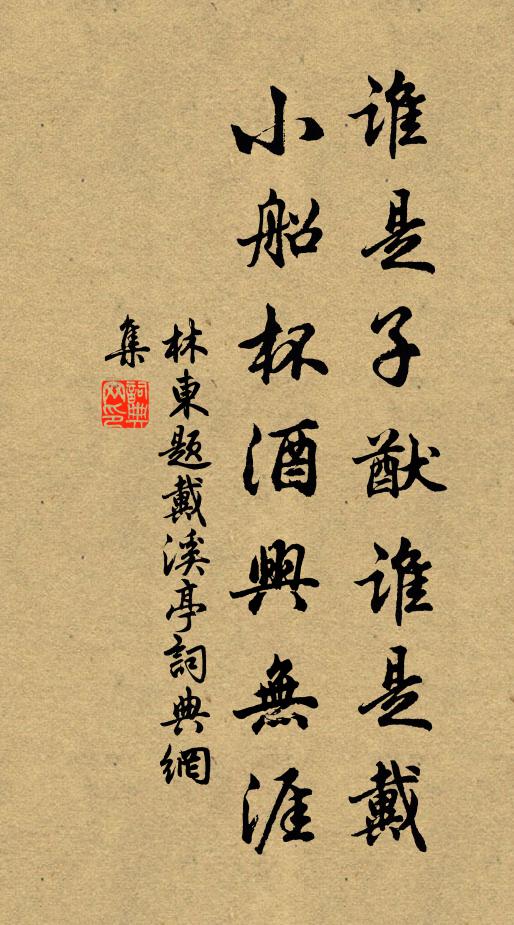 誰是子猷誰是戴
小船杯酒興無涯
林東題戴溪亭詞典網
集
詞典
網印